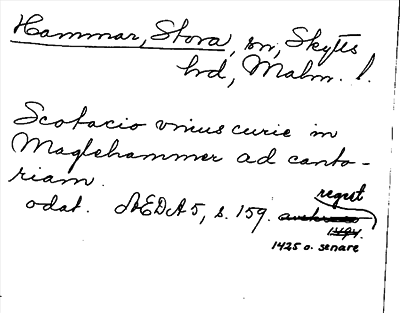 Hammar, Stora, sn, Skytts
hrd, Malm. l.
Scotacio vnius curie in
Maglehammer ad canto-
riam.
regest
odat. ÆDA 5, s. 159.
1494.
1425 o. senare